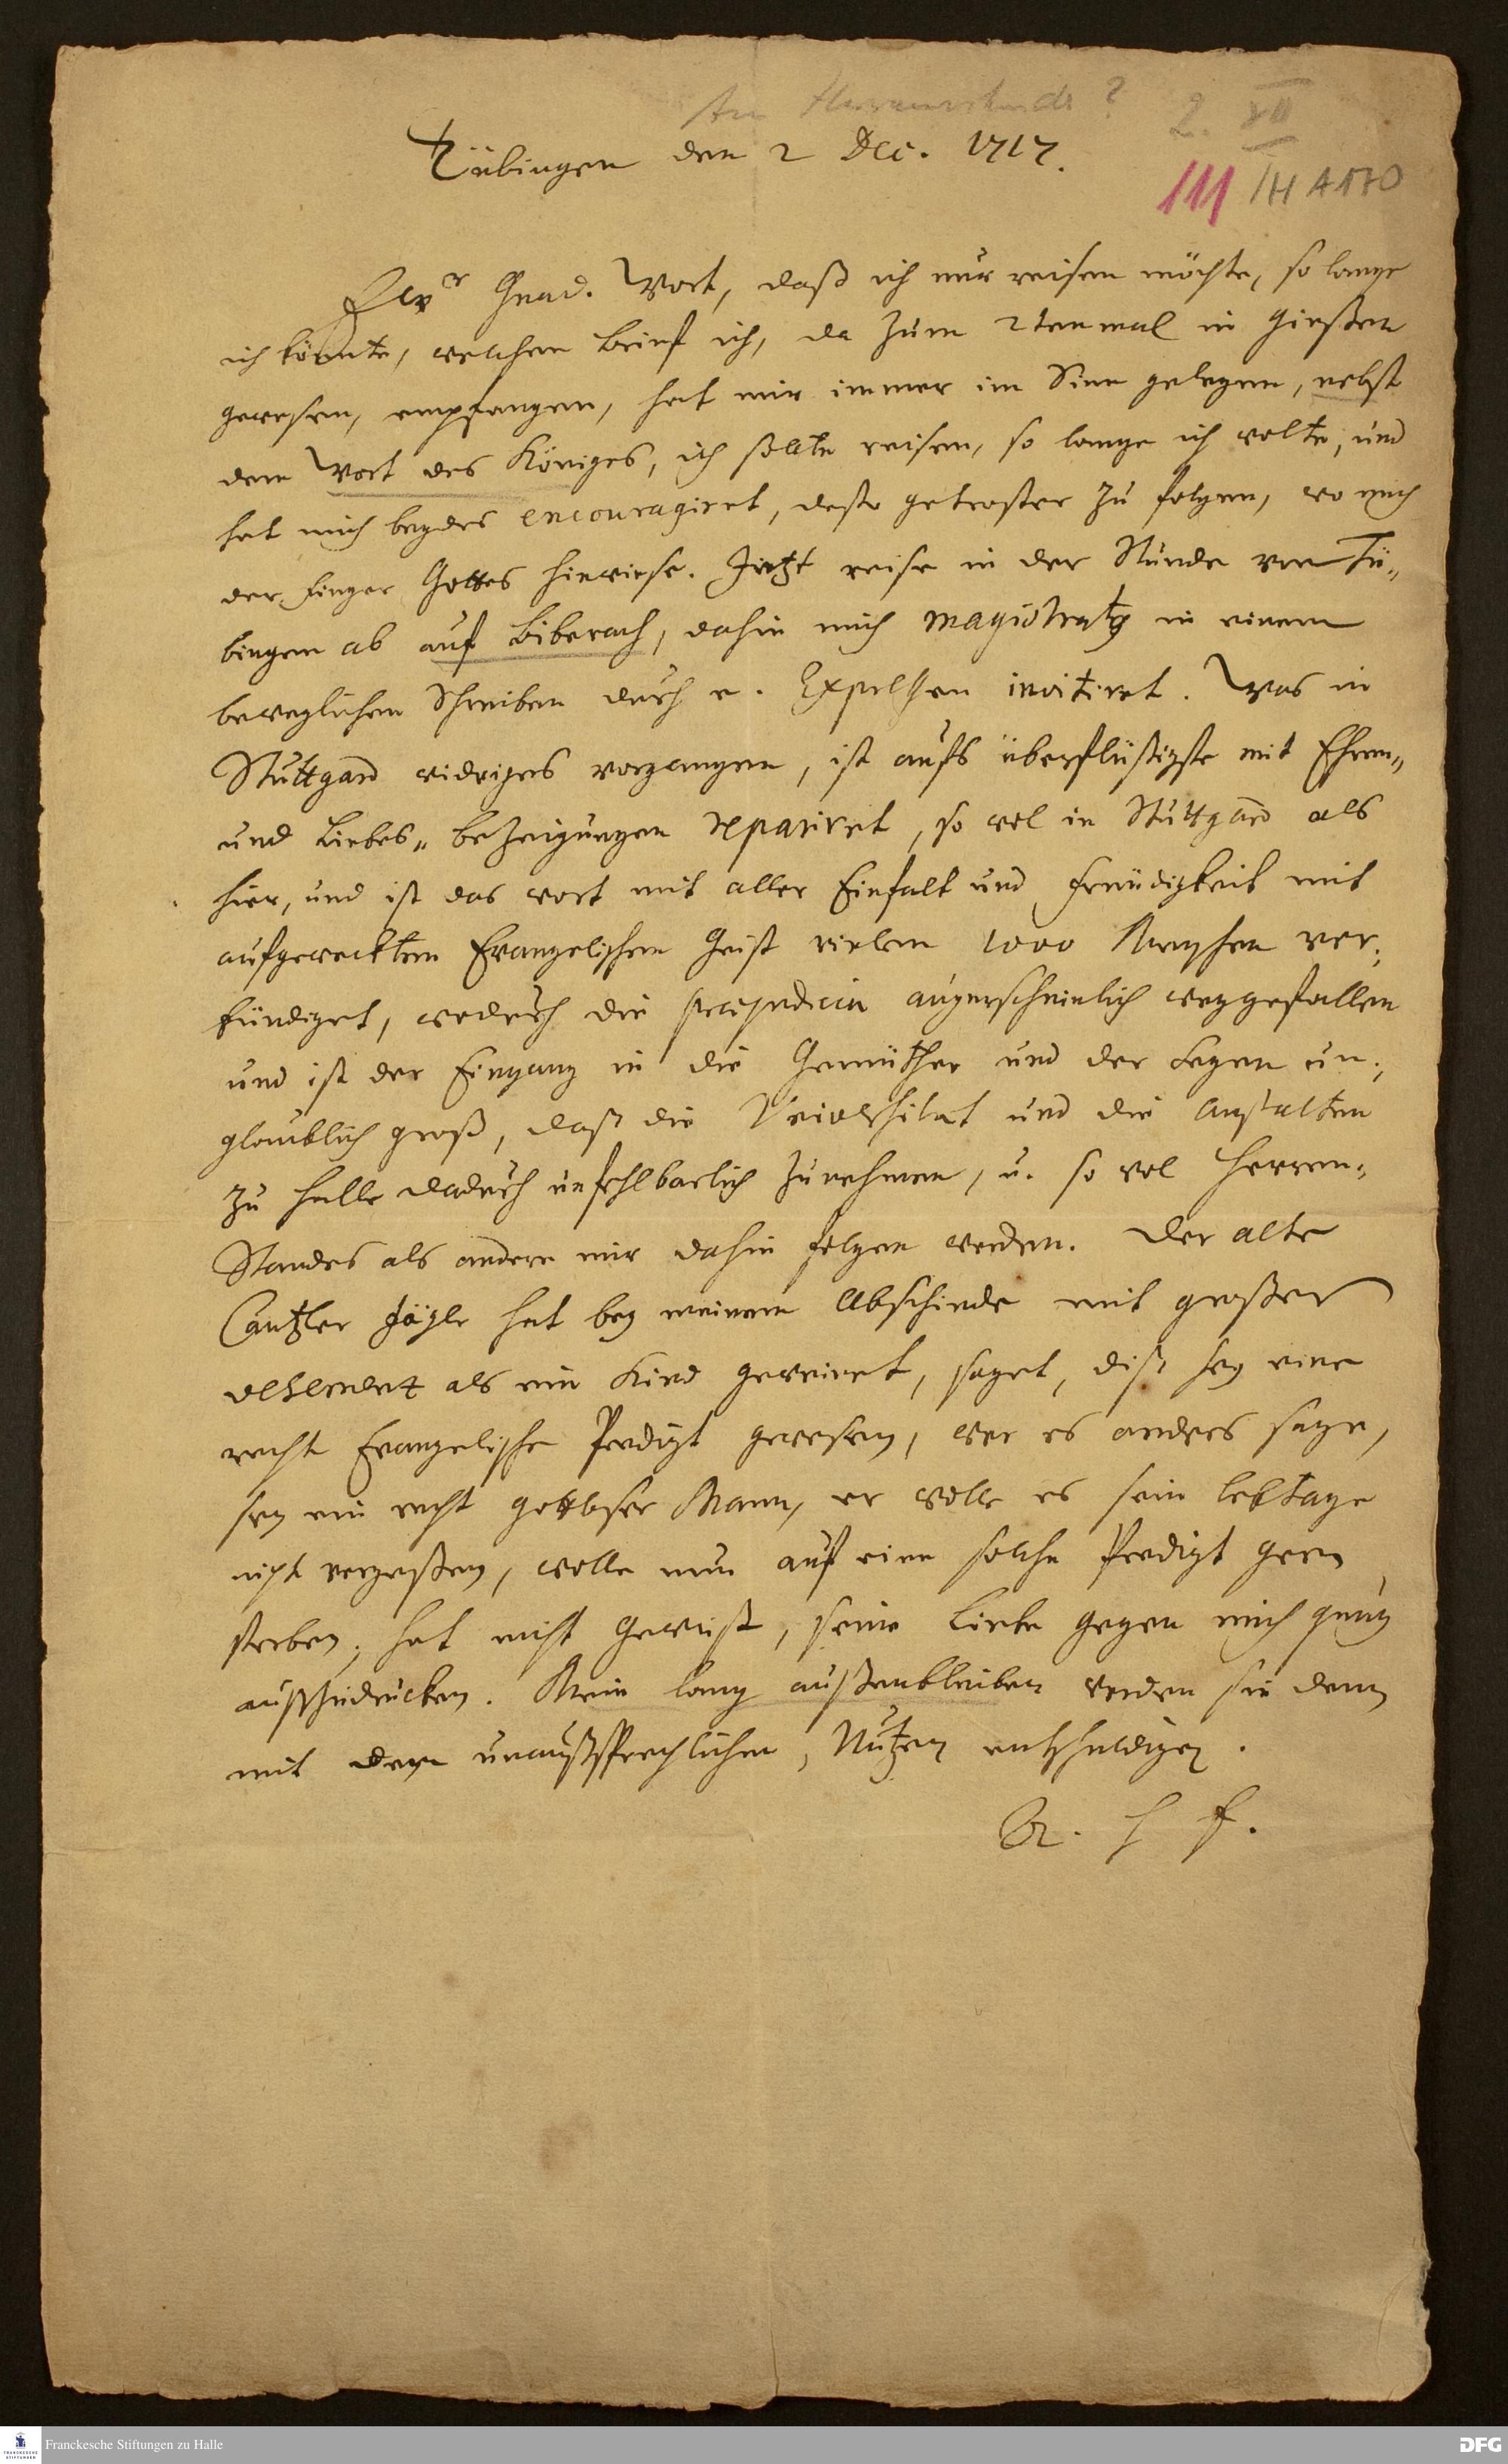 2. XII
Tübingen den 2 Dec. 1717.
111 1H A 170
Ewr Gnad. Wort, daß ich nur reisen möchte, so lange
ich könte, welchen Brief ich, da zum 2tenmal in Gießen
gewesen, empfangen, hat mir immer im Sinn gelegen, nebst
dem Wort des Königes, ich sollte reisen, so lange ich wolte, und
hat mich beydes encouragiret, desto getroster zu folgen, wo mich
der Finger Gottes hinwiese. Jetzt reise in der Stunde von Tü-
bingen ab auf Biberach, dahin mich magistratus in einem
beweglichen Schreiben durch e. Expressen invitiret. Was in
Stuttgard widriges vorgangen, ist aufs überflüßigste mit Ehren-
und Liebes-bezeigungen repariret, so wol in Stuttgard als
hier, und ist das wort mit aller Einfalt und Freudigkeit mit
aufgewecktem Evangelischem Geist vielen 1000 Menschen ver-
kündiget, wodurch die praejudicia augenscheinlich weggefallen
und ist der Eingang in die Gemüther und der Segen un-
glaublich groß, daß die Universität und die Anstalten
zu Halle dadurch unfehlbarlich zunehmen, u. so wol Herren-
Standes als andere mir dahin folgen werden. Der alte
Cantzler Jäger hat bey meinem Abschiede mit großer
vehement als ein Kind geweinet, saget, diß sey eine
recht Evangelische Predigt gewesen, wer es anders sage,
sey ein recht gottloser Mann, er wolle es sein lebtage
nicht vergeßen, wolle nun auf eine solche Predigt gern
sterben, hat nicht gewust, seine Liebe gegen mich gnug
auszudrucken. Mein lang außenbleiben werden sie denn
mit dem unaußsprechlichen Nutzen entschuldigen.
A. H F.
Franckesche Stiftungen zu Halle
DFG